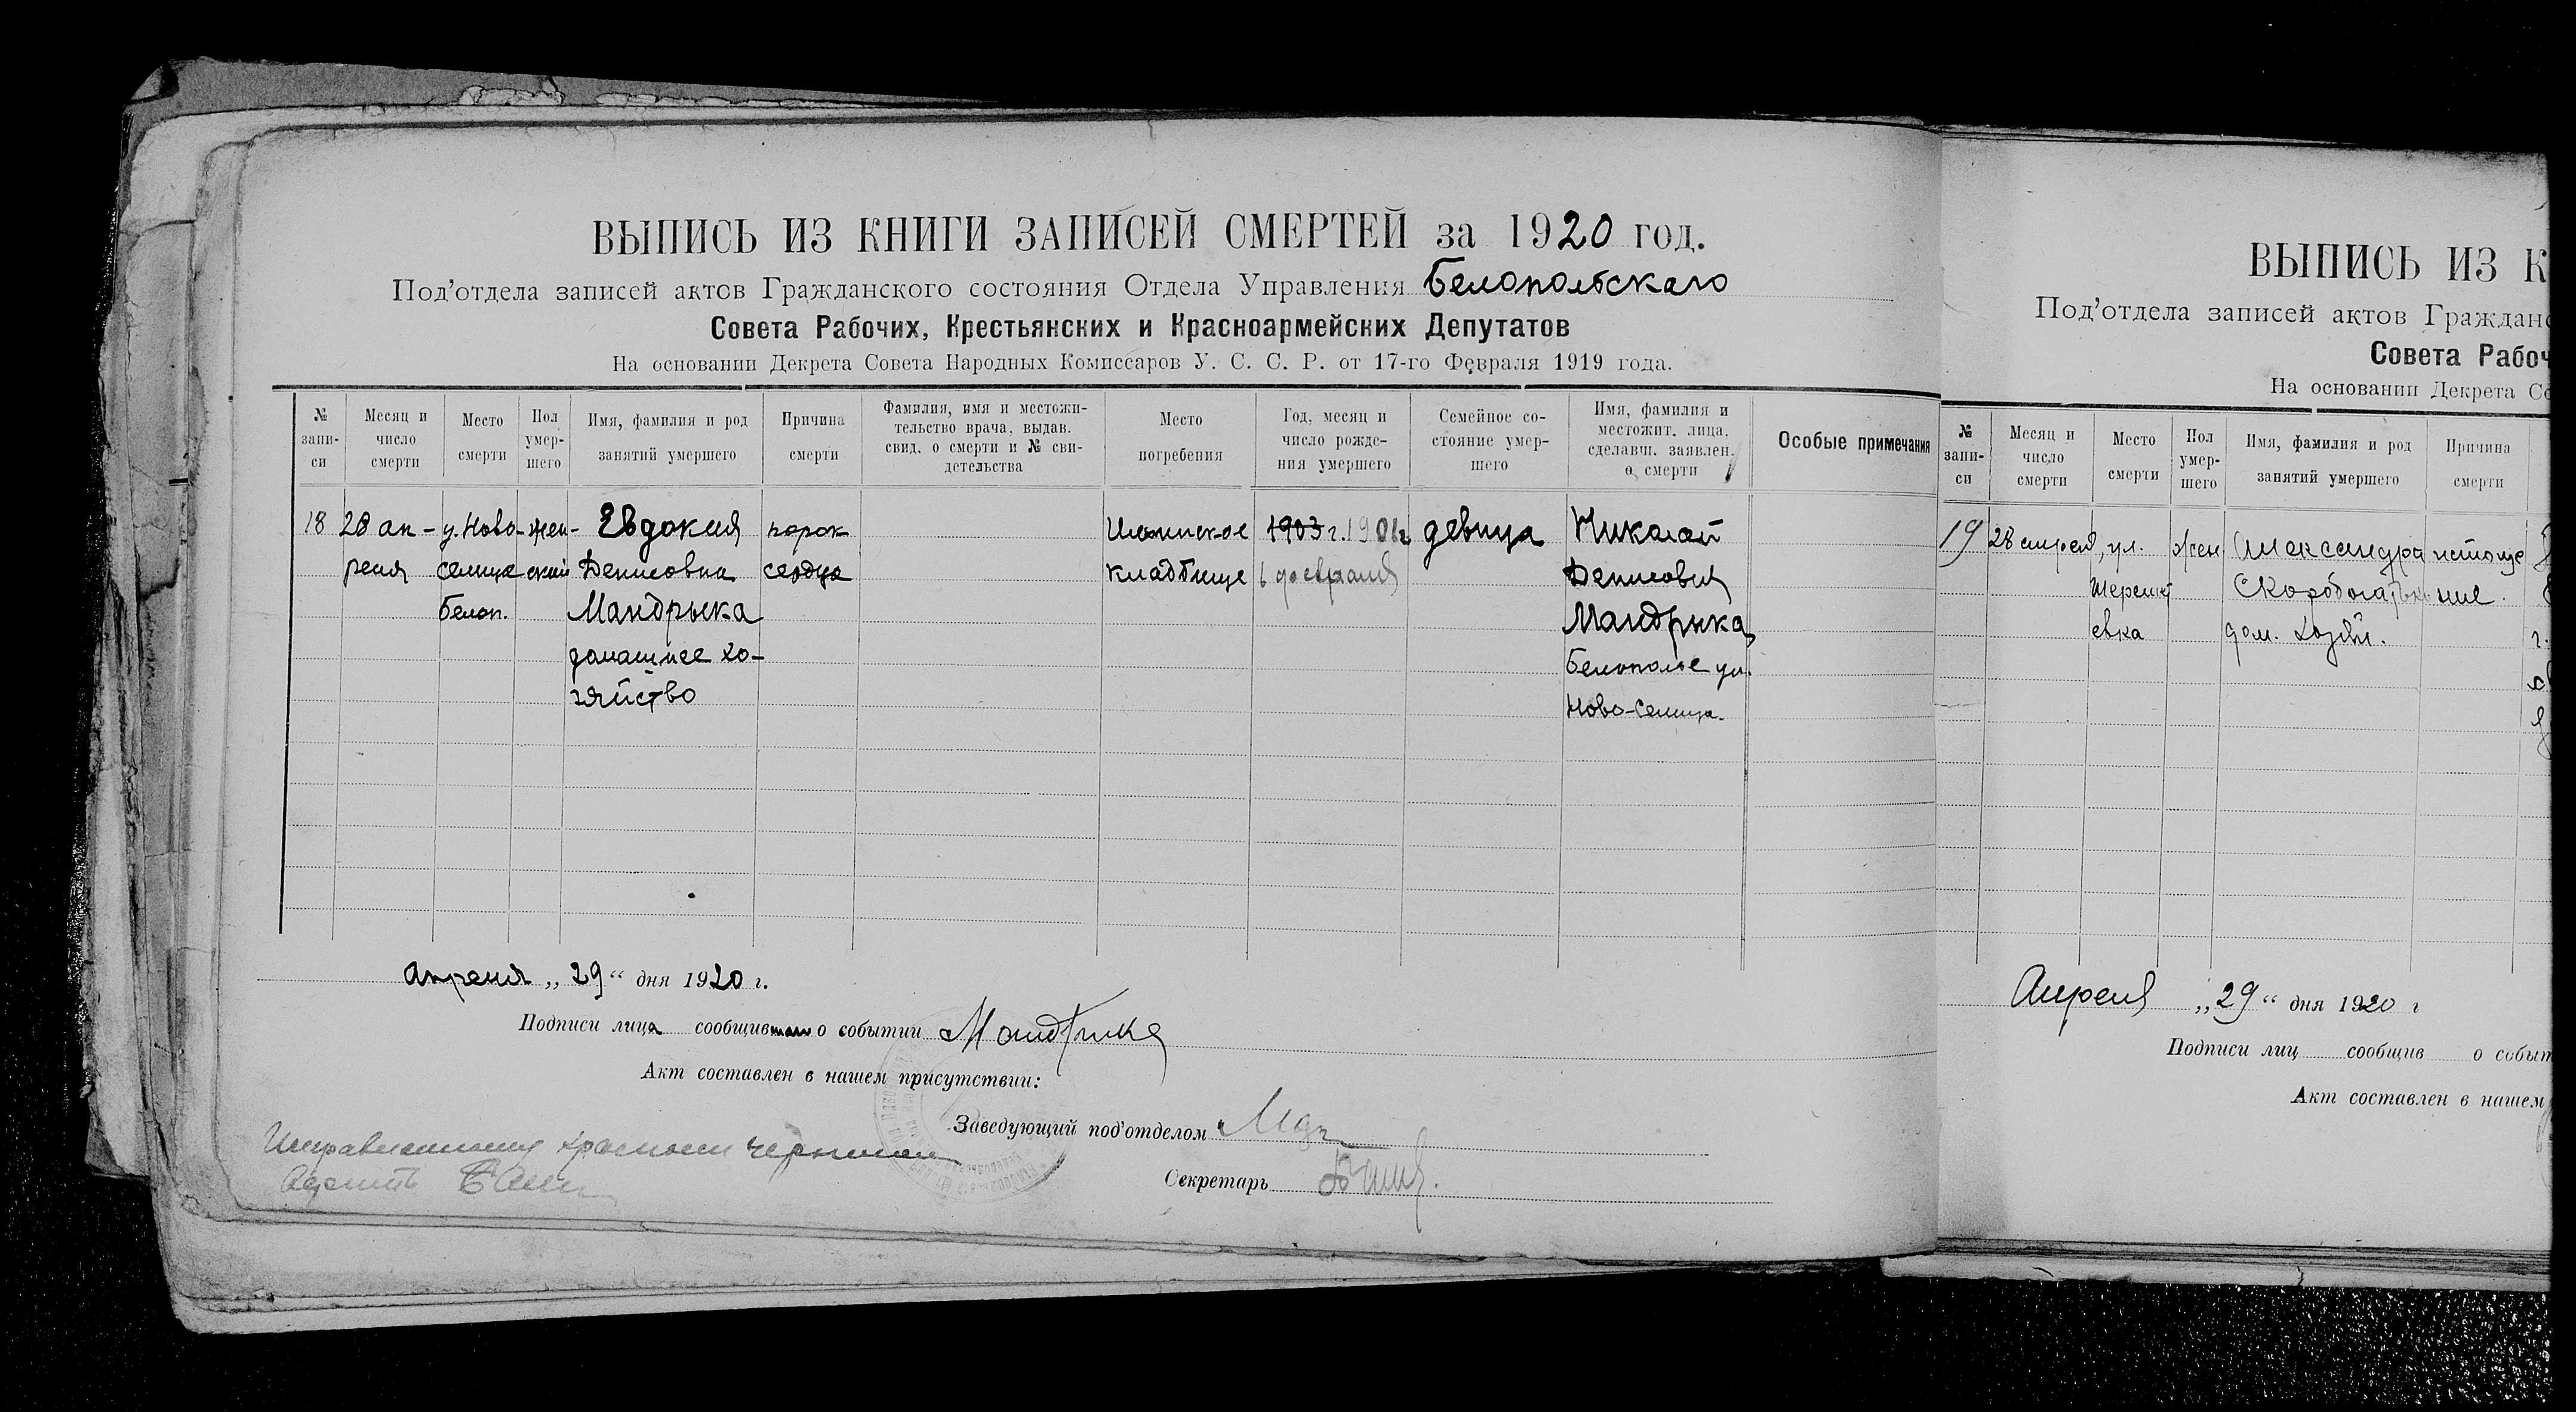 ВЫПИСЬ ИЗ КНИГИ ЗАПИСЕЙ СМЕРТЕЙ за 1920 год.
Под'отдела записей актов Гражданского состояния Отдела Управления Белопольскаго
Совета Рабочих, Крестьянских и Красноармейских Депутатов
На основании Декрета Совета Народных Комиссаров У. С. С. Р. от 17-го Февраля 1919 года.
№ запи-
си
Месяц и
число
смерти
Место
смерти
Пол
умер-
шего
Имя, фамилия и род
занятий умершего
Причина
смерти
Фамилия, имя и местожи-
тельство врача, выдав.
свид. о смерти и № сви-
детельства
Место
погребения
Год, месяц и
число рожде-
ния умершего
Семейное со-
стояние умер-
шего
Имя, фамилия и
местожит. лица,
сделавш. заявлен.
о смерти
Особые примечания
18
28 ап-
реля
у. Ново-
селица
Белоп.
жен-
ский
Евдокия
Денисовна
Мандрыка
домашнее хо-
зяйство
порок
сердца
Ильинское
кладбище
1903 г. 1901 г
февраля
девица
Николай
Денисовия
Мандрыка,
Белополье ул.
Ново-Селица.
Апреля „ 29 “ дня 1920 г.
Подписи лица сообщив о событии Мандрыка
Акт составлен в нашем присутствии:
Заведующий под'отделом
Секретарь
чернилам
ВЫПИСЬ ИЗ К
Под'отдела записей актов Гражданс
Совета Рабоч
На основании Декрета Со
№ запи-
си
Месяц и
число
смерти
Место
смерти
Пол
умер-
шего
Имя, фамилия и род
занятий умершего
Причина
смерти
19
28 апреля
ул.
евка
жен
Александра
дом. хозяй.
истоще
ние.
Апреля „ 29 “ дня 1920 г
Подписи лиц сообщив о событ
Акт составлен в нашем